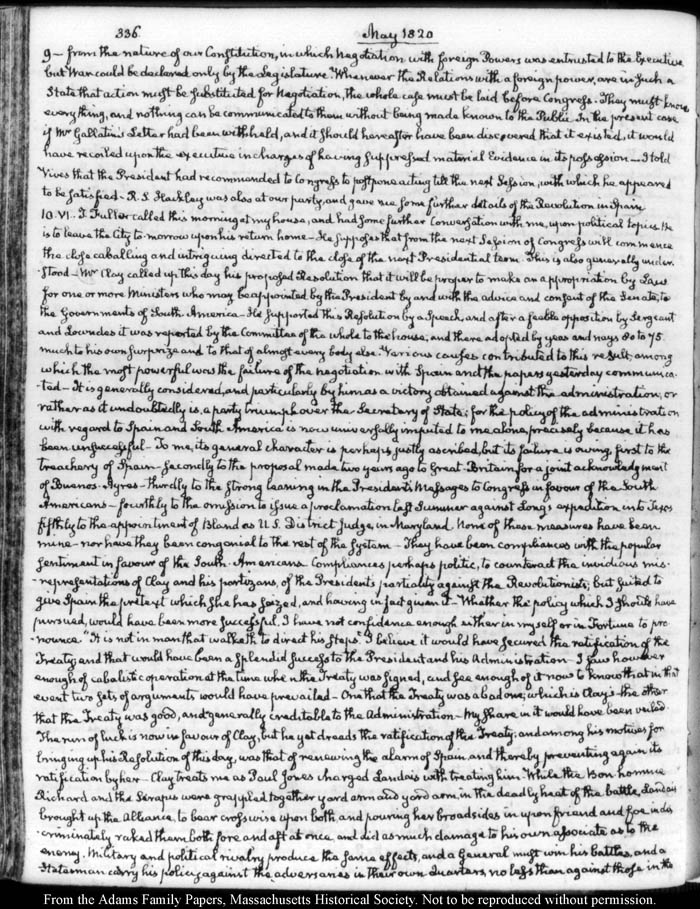 336
May 1820
9 – from the nature of our Constitution, in which Negotiation with foreign Powers was entrusted to the Executive
but War could be declared only by the Legislature. Whenever the Relations with a foreign power, are in such a
State that action must be substituted for Negotiation, the whole case must be laid before Congress. They must know
every thing, and nothing can be communicated to them without being made known to the Public. In the present case
if Mr Gallatin's Letter had been withheld, and it should hereafter have been discovered that it existed, it would
have recoiled upon the executive in charges of having suppressed material Evidence in its possession – I told
Vives that the President had recommended to Congress to postpone acting till the next Session, with which he appeared
to be satisfied – R. S. Hackley was also at our party, and gave me some further details of the Revolution in Spain
10. VI. T. Fuller called this morning at my house, and had some further Conversation with me, upon political topics. He
is to leave the City to-morrow upon his return home – He supposes that from the next Session of Congress will commence
the close caballing and intriguing directed to the close of the next Presidential term. This is also generally under-
-stood – Mr Clay called up this day his proposed Resolution that it will be proper to make an appropriation by Law
for one or more Ministers who may be appointed by the President by and with the advice and consent of the Senate, to
the Governments of South America – He supported this Resolution by a Speech, and after a feeble opposition by Sergeant
and Lowndes it was reported by the Committee of the whole to the house, and there adopted by yeas and nays 80 to 75.
much to his own surprize and to that of almost every body else. Various causes contributed to this result, among
which the most powerful was the failure of the negotiation with Spain and the papers yesterday communica-
-ted – It is generally considered, and particularly by him as a victory obtained against the administration, or
rather as it undoubtedly is, a party triumph over the Secretary of State; for the policy of the administration
with regard to Spain and South America is now universally imputed to me alone, precisely because it has
been unsuccessful – To me, its general character is perhaps justly ascribed, but its failure is owing, first to the
treachery of Spain – Secondly to the proposal made two years ago to Great Britain for a joint acknowledgment
of Buenos-Ayres – thirdly to the strong leaning in the President's Messages to Congress in favour of the South
Americans – fourthly to the omission to issue a proclamation last Summer against Long's expedition into Texas
fifthly to the appointment of Bland as U.S. District Judge in Maryland. None of these measures have been
mine – nor have they been congenial to the rest of the System – They have been compliances with the popular
sentiment in favour of the South-Americans. Compliances perhaps politic, to counteract the invidious mis-
-representations of Clay and his partizans, of the President's partiality against the Revolutionists, but suited to
give Spain the pretext which she has seized, and having in fact given it – Whether the policy which I should have
pursued, would have been more successful, I have not confidence enough either in myself or in Fortune to pro-
-nounce. "It is not in man that walketh to direct his steps." I believe it would have secured the ratification of the
Treaty; and that would have been a splendid success to the President and his Administration – I saw however
enough of cabalistic operation at the time when the Treaty was signed, and see enough of it now to know that in that
event two sets of arguments would have prevailed – One that the Treaty was a bad one; which is Clay's – the other
that the Treaty was good, and generally creditable to the Administration – My share in it would have been veiled
The run of luck is now in favour of Clay, but he yet dreads the ratification of the Treaty: and among his motives for
bringing up his Resolution of this day, was that of renewing the alarm of Spain and thereby preventing again its
ratification by her – Clay treats me as Paul Jones charged Landais with treating him. While the Bon homme
Richard and the Serapis were grappled together yard arm and yard arm, in the deadly heat of the battle, Landais
brought up the Alliance, to bear crosswise upon both and pouring her broadsides in upon friend and foe indis-
-criminately raked them both fore and aft at once, and did as much damage to his own associate as to the
enemy. Military and political rivalry produce the same effects, and a General must win his battles, and a
Statesman carry his policy against the adversaries in their own quarters, no less than against those in the
From the Adams Family Papers, Massachusetts Historical Society. Not to be reproduced without permission.